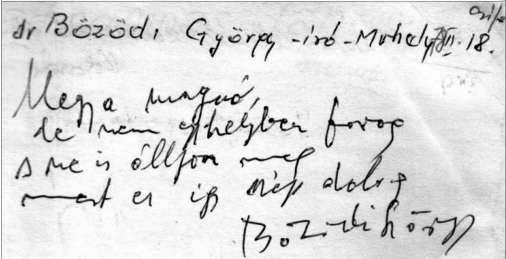 dr Bözödi György - író - 18.
Megy a
de nem egyhelyben forog
s ne is álljon meg
mert ez így szép dolog
Bözödi György